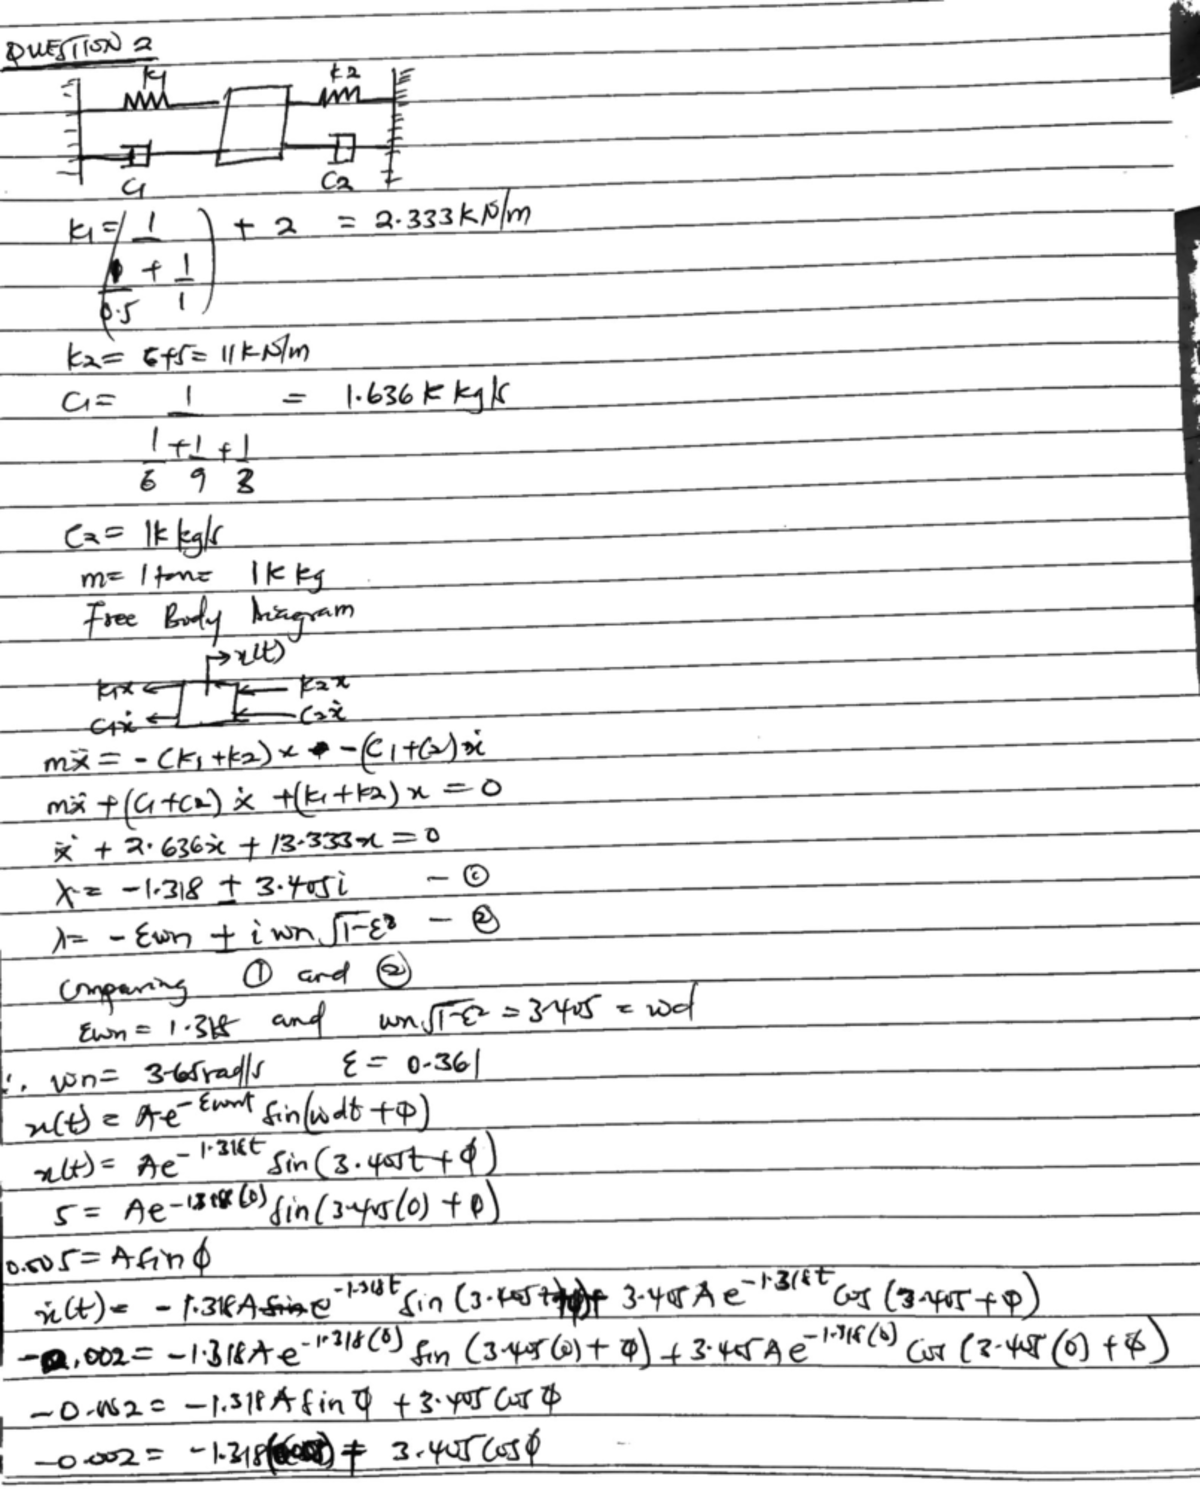 QUESTION 2
K1 K2
C1 C2
K1 = ( 1 / ( 1/0.5 + 1/1 ) ) + 2 = 2.333 KN/m
K2 = 6+5 = 11 KN/m
C1 = 1 / ( 1/6 + 1/9 + 1/3 ) = 1.636 K kg/s
C2 = 1K kg/s
m = 1 tone 1K kg
Free Body Diagram
x(t)
K1x K2x
C1ẋ C2ẋ
mẍ = -(K1+K2)x -(C1+C2)ẋ
mẍ + (C1+C2)ẋ + (K1+K2)x = 0
ẍ + 2.636ẋ + 13.333x = 0
λ = -1.318 ± 3.405i - ①
λ = -Ɛwn ± i wn √1-Ɛ² - ②
Comparing ① and ②
Ɛwn = 1.318 and wn√1-Ɛ² = 3.405 = wd
∴ wn = 3.65rad/s Ɛ = 0.361
x(t) = Ae^-Ɛwnt Sin(wdt + Φ)
x(t) = Ae^-1.318t Sin(3.405t + Φ)
5 = Ae^-1.318(0) Sin(3.405(0) + Φ)
0.005 = A Sin Φ
ẋ(t) = -1.318A e^-1.318t Sin (3.405t+Φ) + 3.405 A e^-1.318t Cos (3.405+Φ)
-0.002 = -1.318A e^-1.318(0) Sin (3.405(0) + Φ) + 3.405 A e^-1.318(0) Cos (3.405(0) + Φ)
-0.002 = -1.318 A Sin Φ + 3.405 Cos Φ
-0.002 = -1.318(0.005) + 3.405 Cos Φ